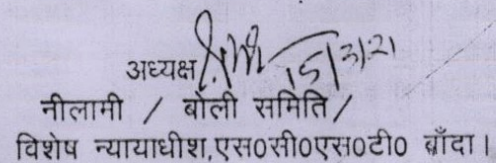 अध्यक्ष 15/3/21
नीलामी / बोली समिति /
विशेष न्यायाधीश,एस0सी0एस0टी0 बाँदा।